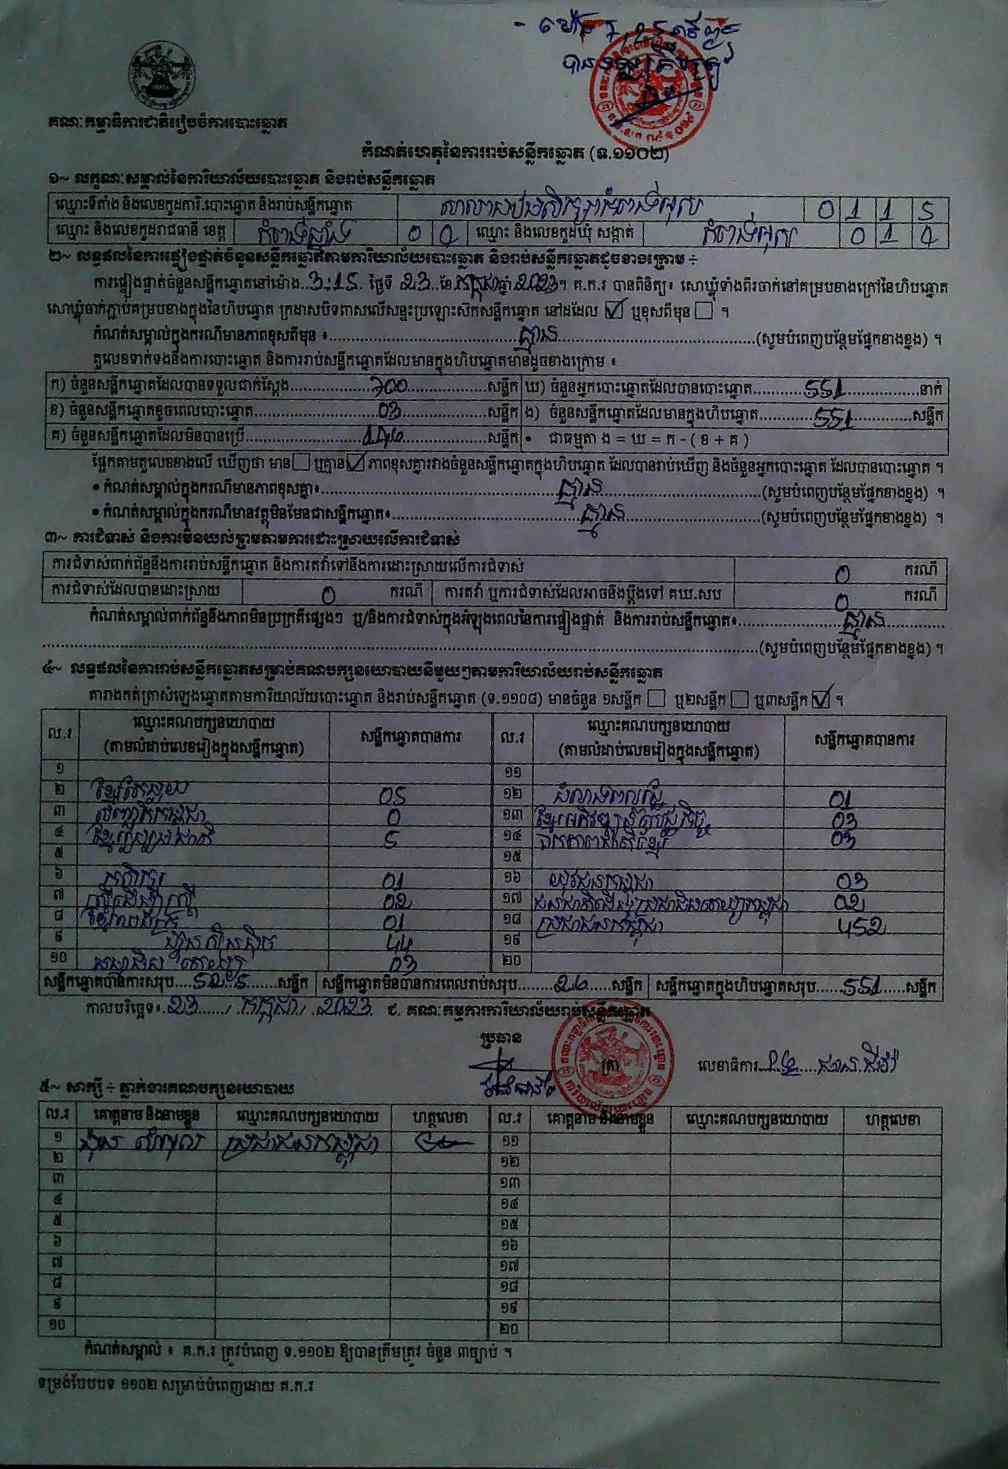 គណៈកម្មាធិការជាតិរៀបចំការបោះឆ្នោត
កំណត់ហេតុនៃការរាប់សន្លឹកឆ្នោត (ទ.១១០២)
១~ លក្ខណៈសម្គាល់នៃការិយាល័យបោះឆ្នោត និងរាប់សន្លឹកឆ្នោត
ឈ្មោះទីតាំង និងលេខកូដការិ.បោះឆ្នោត និងរាប់សន្លឹកឆ្នោត 0 1 1 5
ឈ្មោះ និងលេខកូដរាជធានី ខេត្ត កំពង់ឆ្នាំង ឈ្មោះ និងលេខកូដឃុំ សង្កាត់
២~ លទ្ធផលនៃការផ្ទៀងផ្ទាត់ចំនួនសន្លឹកឆ្នោតតាមការិយាល័យបោះឆ្នោត និងរាប់សន្លឹកឆ្នោតដូចខាងក្រោម ÷
ការផ្ទៀងផ្ទាត់ចំនួនសន្លឹកឆ្នោតនៅម៉ោង..3:15. ថ្ងៃទី 23..ខែ កក្កដា ឆ្នាំ 2023។ គ.ក.រ បានពិនិត្យ៖ សោឃ្លុំទាំងពីរចាក់នៅគម្របខាងក្រៅនៃហិបឆ្នោត
សោឃ្លុំចាក់ភ្ជាប់គម្របខាងក្នុងនៃហិបឆ្នោត ក្រដាសបិទពាសលើសន្ទះប្រឡោះស៊កសន្លឹកឆ្នោត នៅដដែល ☑ ឬខុសពីមុន ☐ ។
កំណត់សម្គាល់ក្នុងករណីមានភាពខុសពីមុន ៖ គ្មាន (សូមបំពេញបន្ថែមផ្នែកខាងខ្នង) ។
តួលេខទាក់ទងនឹងការបោះឆ្នោត និងការរាប់សន្លឹកឆ្នោតដែលមានក្នុងហិបឆ្នោតមានដូចខាងក្រោម ៖
ក) ចំនួនសន្លឹកឆ្នោតដែលបានទទួលជាក់ស្តែង 700 សន្លឹក ឃ) ចំនួនអ្នកបោះឆ្នោតដែលបានបោះឆ្នោត 551 នាក់
ខ) ចំនួនសន្លឹកឆ្នោតខូចពេលបោះឆ្នោត 03 សន្លឹក ង) ចំនួនសន្លឹកឆ្នោតដែលមានក្នុងហិបឆ្នោត 551 សន្លឹក
គ) ចំនួនសន្លឹកឆ្នោតដែលមិនបានប្រើ 146 សន្លឹក • ជាធម្មតា ង = ឃ = ក - ( ខ + គ )
ផ្អែកតាមតួលេខខាងលើ ឃើញថា មាន ☐ ឬគ្មាន ☑ ភាពខុសគ្នារវាងចំនួនសន្លឹកឆ្នោតក្នុងហិបឆ្នោត ដែលបានរាប់ឃើញ និងចំនួនអ្នកបោះឆ្នោត ដែលបានបោះឆ្នោត ។
• កំណត់សម្គាល់ក្នុងករណីមានភាពខុសគ្នា៖ គ្មាន (សូមបំពេញបន្ថែមផ្នែកខាងខ្នង) ។
• កំណត់សម្គាល់ក្នុងករណីមានវត្ថុមិនមែនជាសន្លឹកឆ្នោត៖ គ្មាន (សូមបំពេញបន្ថែមផ្នែកខាងខ្នង) ។
៣~ ការជំទាស់ និងការមិនយល់ព្រមតាមការដោះស្រាយលើការជំទាស់
ការជំទាស់ពាក់ព័ន្ធនឹងការរាប់សន្លឹកឆ្នោត និងការតវ៉ាទៅនឹងការដោះស្រាយលើការជំទាស់ 0 ករណី
ការជំទាស់ដែលបានដោះស្រាយ 0 ករណី ការតវ៉ា ឬការជំទាស់ដែលអាចនឹងប្តឹងទៅ គឃ.សប 0 ករណី
កំណត់សម្គាល់ពាក់ព័ន្ធនឹងភាពមិនប្រក្រតីផ្សេងៗ ឬ/និងការជំទាស់ក្នុងអំឡុងពេលនៃការផ្ទៀងផ្ទាត់ និងការរាប់សន្លឹកឆ្នោត៖ គ្មាន
(សូមបំពេញបន្ថែមផ្នែកខាងខ្នង) ។
៤~ លទ្ធផលនៃការរាប់សន្លឹកឆ្នោតសម្រាប់គណបក្សនយោបាយនីមួយៗតាមការិយាល័យរាប់សន្លឹកឆ្នោត
តារាងកត់ត្រាសំឡេងឆ្នោតតាមការិយាល័យបោះឆ្នោត និងរាប់សន្លឹកឆ្នោត (ទ.១១០៨) មានចំនួន ១សន្លឹក ☐ ឬ២សន្លឹក ☐ ឬ៣សន្លឹក ☑ ។
ល.រ ឈ្មោះគណបក្សនយោបាយ (តាមលំដាប់លេខរៀងក្នុងសន្លឹកឆ្នោត) សន្លឹកឆ្នោតបានការ ល.រ ឈ្មោះគណបក្សនយោបាយ (តាមលំដាប់លេខរៀងក្នុងសន្លឹកឆ្នោត) សន្លឹកឆ្នោតបានការ
១ ១១
២ 05 ១២ 01
៣ 0 ១៣ 03
៤ 5 ១៤ 03
៥ ១៥
៦ 01 ១៦ 03
៧ 02 ១៧ 02
៨ 01 ១៨ ប្រជាជនកម្ពុជា 452
៩ ហ្វ៊ុនស៊ិនប៉ិច 44 ១៩
១០ 03 ២០
សន្លឹកឆ្នោតបានការសរុប 525 សន្លឹក សន្លឹកឆ្នោតមិនបានការពេលរាប់សរុប 26 សន្លឹក សន្លឹកឆ្នោតក្នុងហិបឆ្នោតសរុប 551 សន្លឹក
កាលបរិច្ឆេទ៖ 23 / កក្កដា / 2023 ជ. គណៈកម្មការការិយាល័យរាប់សន្លឹកឆ្នោត
ប្រធាន
ត្រា
លេខាធិការ
៥~ សាក្សី ÷ ភ្នាក់ងារគណបក្សនយោបាយ
ល.រ គោត្តនាម និងនាមខ្លួន ឈ្មោះគណបក្សនយោបាយ ហត្ថលេខា ល.រ គោត្តនាម និងនាមខ្លួន ឈ្មោះគណបក្សនយោបាយ ហត្ថលេខា
១ ប្រជាជនកម្ពុជា ១១
២ ១២
៣ ១៣
៤ ១៤
៥ ១៥
៦ ១៦
៧ ១៧
៨ ១៨
៩ ១៩
១០ ២០
កំណត់សម្គាល់ ៖ គ.ក.រ ត្រូវបំពេញ ទ.១១០២ ឱ្យបានត្រឹមត្រូវ ចំនួន ៣ច្បាប់ ។
ទម្រង់បែបបទ ១១០២ សម្រាប់បំពេញដោយ គ.ក.រ